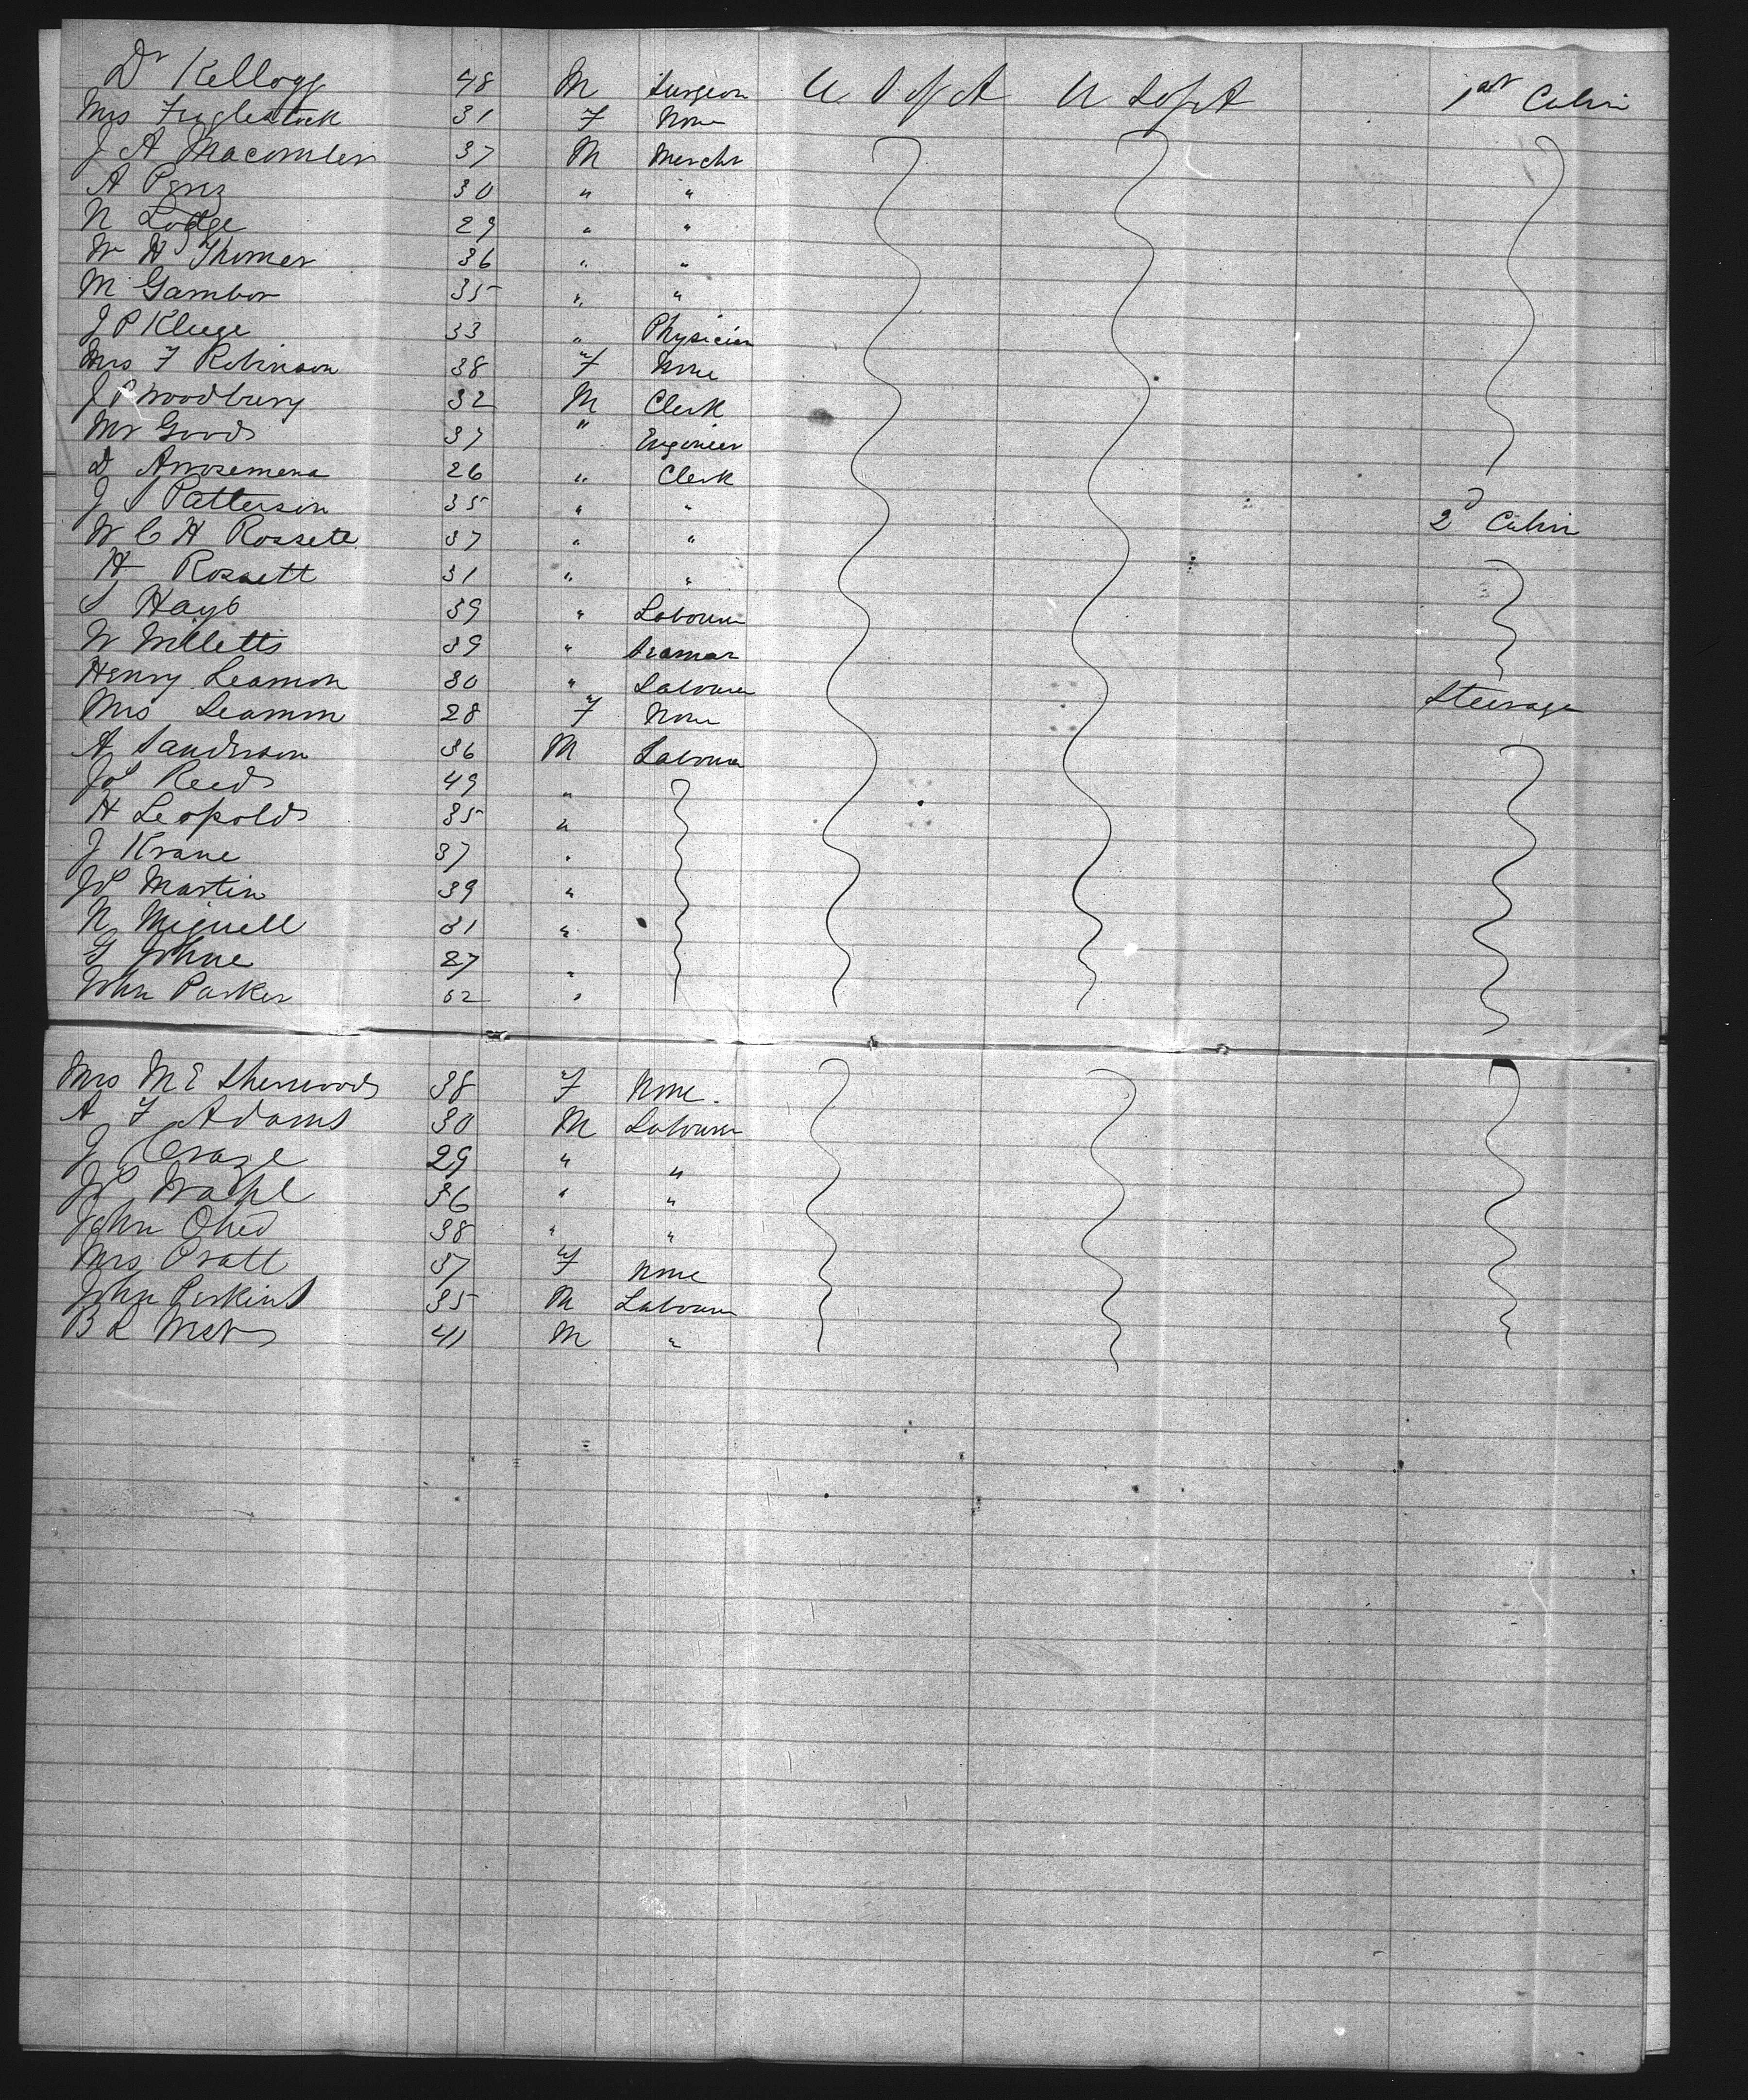 Dr Kellogg 48 M Surgeon U S of A U S of A 1st Cabin
Mrs 31 F None
J A Macomber 37 M Mercht
A Perez 30 " "
N Lodge 29 " "
W H Thomas 36 " "
M Gambor 35 " "
J P Kluge 33 " Physician
Mrs F Robinson 38 F None
J P Woodbury 32 M Clerk
Mr Good 37 " Engineer
D Arrosemena 26 " Clerk
J S Patterson 35 " " 2d Cabin
W C H Rossett 37 " "
H Rossett 31 " "
S Hays 39 " Labourer
W Willetts 39 " Seaman
Henry Leamon 30 " Labourer Steerage
Mrs Leamon 28 F None
A Sanderson 36 M Labourer
Js Reed 49 "
H Leopold 35 "
J Krane 37 "
Js Martin 39 "
N Miguell 31 "
G Johne 27 "
John Parker 52 "
Mrs M E Sherwood 38 F None
A F Adams 30 M Labourer
J Craze 29 " "
Js 36 " "
John Ohed 38 " "
Mrs Pratt 37 F None
John Perkins 35 M Labourer
B R West 41 M "